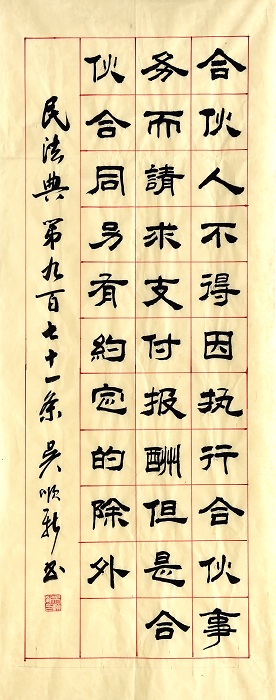 合伙人不得因执行合伙事
务而請求支付报酬但是合
伙合同另有約定的除外
民法典第九百七十一条 吴顺新书